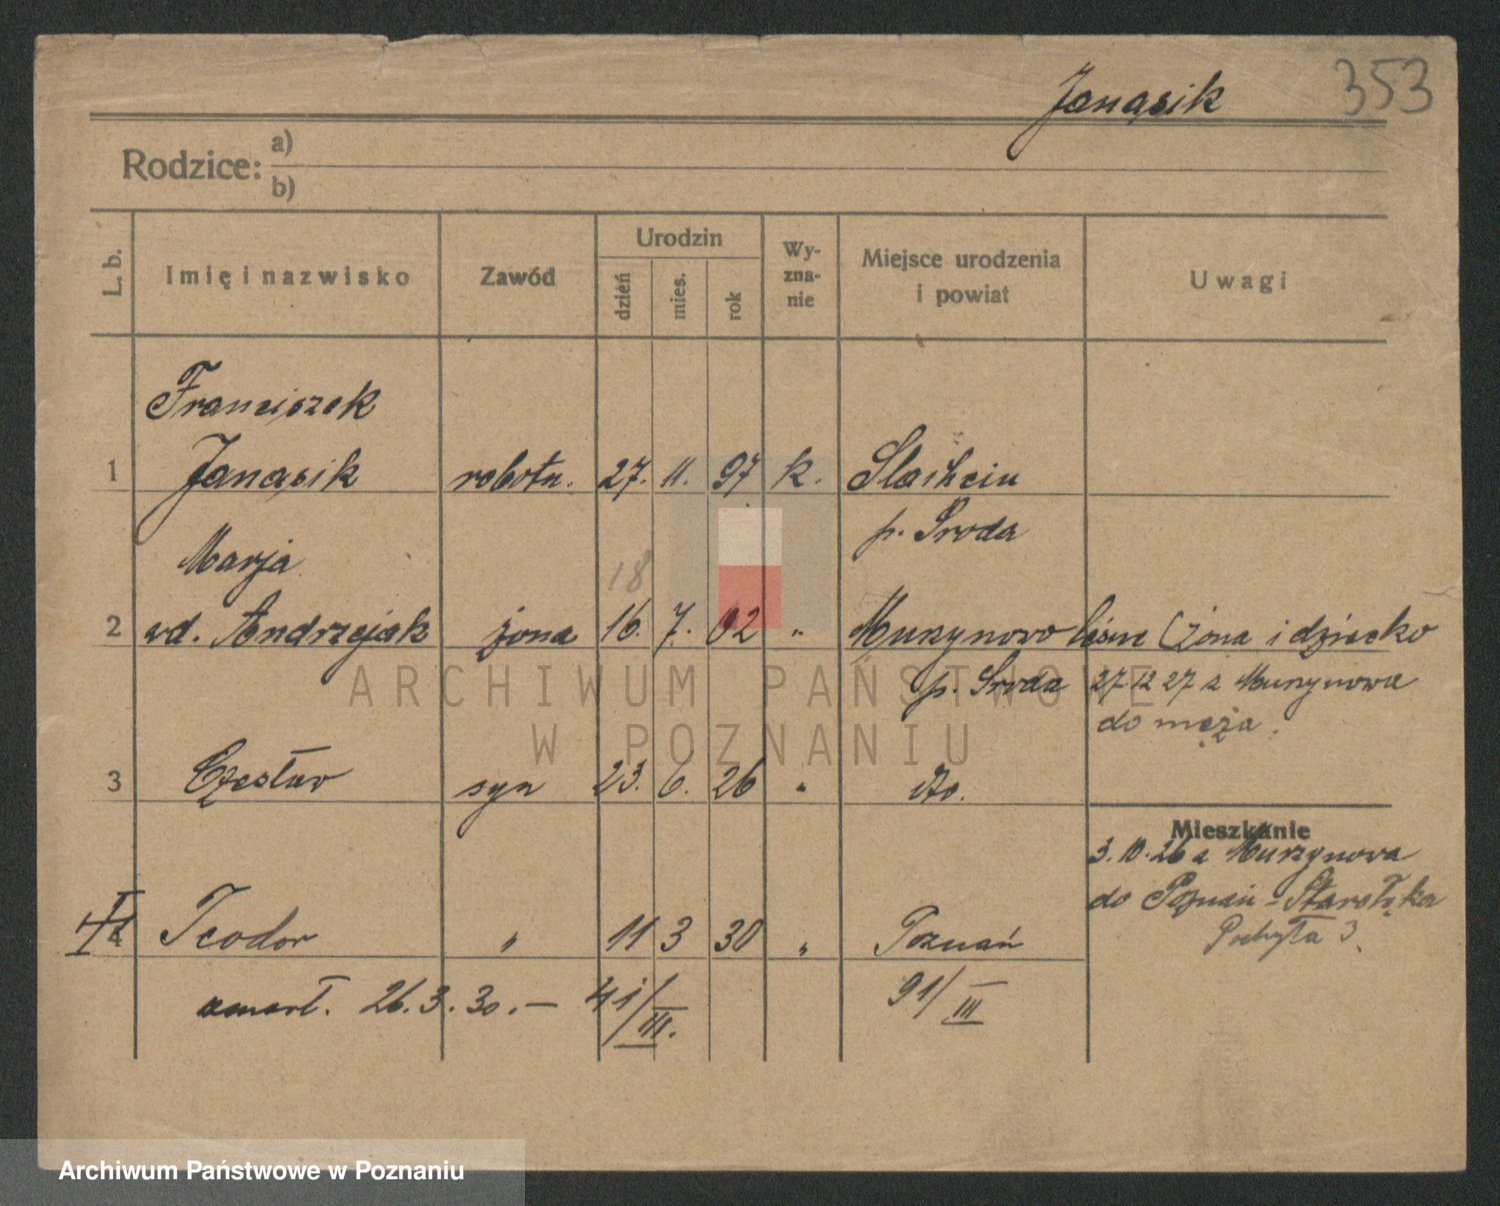 353
Janasik
Rodzice: a)
b)
L. b.
Imię i nazwisko
Zawód
Urodzin
dzień
mies.
rok
Wy-
zna-
nie
Miejsce urodzenia
i powiat
Uwagi
Franciszek
1 Janasik robotn. 27. 11. 97 k.
p. Sroda
Marja
18
2 Andrzejak żona 16. 7. 02 " Murzynowo leśne (żona i dziecko
p. Sroda 27.12 27 z Murzynowa
do męża.
3 Czesław syn 23. 6. 26 " do.
Mieszkanie
3. 10. 26 z Murzynowa
do Poznań - Starołęka
4 Teodor " 11 3 30 " Poznań
zmarł. 26. 3. 30. — 41/III. 91/III
ARCHIWUM PAŃSTWOWE
W POZNANIU
Archiwum Państwowe w Poznaniu